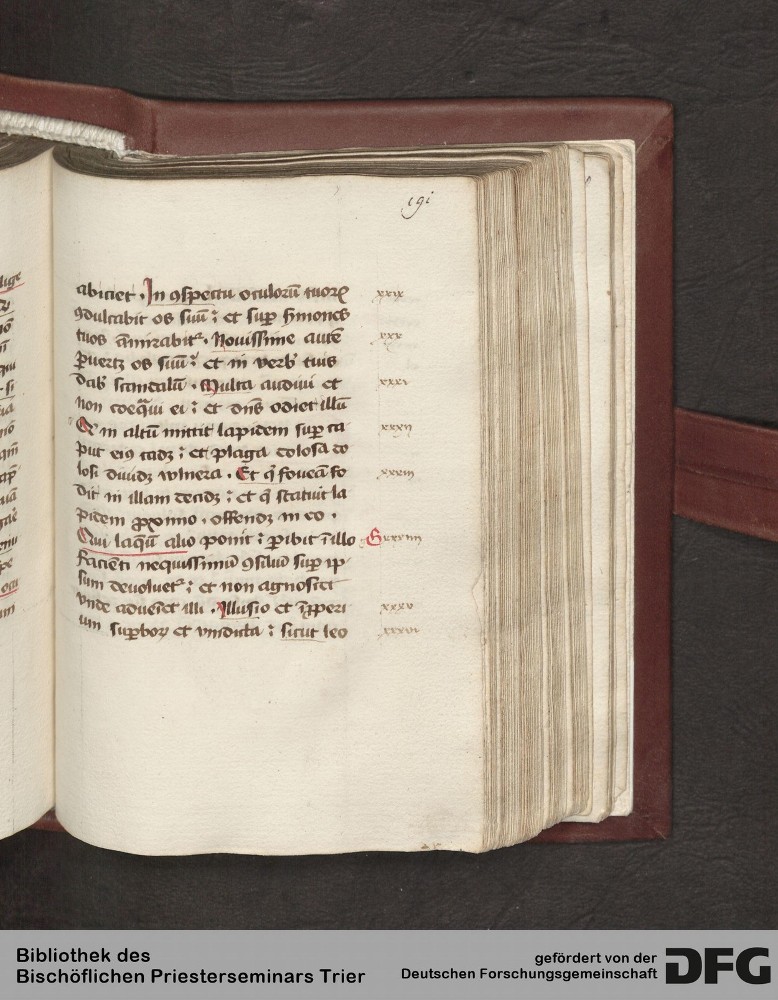 191
abiciet . In ꝯspectu oculorū tuorꝝ xxix
ꝯdulcabit os suū : et sup̄ ẜmones
tuos āmirabitᷣ . Nouissime autē xxx
ꝑuertꝫ os suū : et in verb' tuis
dab' scandalū . Multa audiui et xxxi
non coeq̄ui ei : et dn̄s odiet illū
Q' in altū mittit lapidem sup̄ ca xxxii
put eiꝰ cadꝫ : et plaga dolosa do
losi diuidꝫ vulnera . Et q' foueā fo xxxiii
dit in illam decidꝫ : et q' statuit la
pidem ꝓximo . offendꝫ in eo .
Qui laq̄ū alio ponit : ꝑibit ī illo Gxxxiiii
Faciēti nequissimū ꝯsiliū sup̄ ip
sum deuoluetᷣ : et non agnoscet
vnde adueīet illi . Illusio et īꝓperi xxxv
um suꝑborꝝ et vindicta : sicut leo xxxvi
Bibliothek des
Bischöflichen Priesterseminars Trier
gefördert von der
Deutschen Forschungsgemeinschaft
DFG